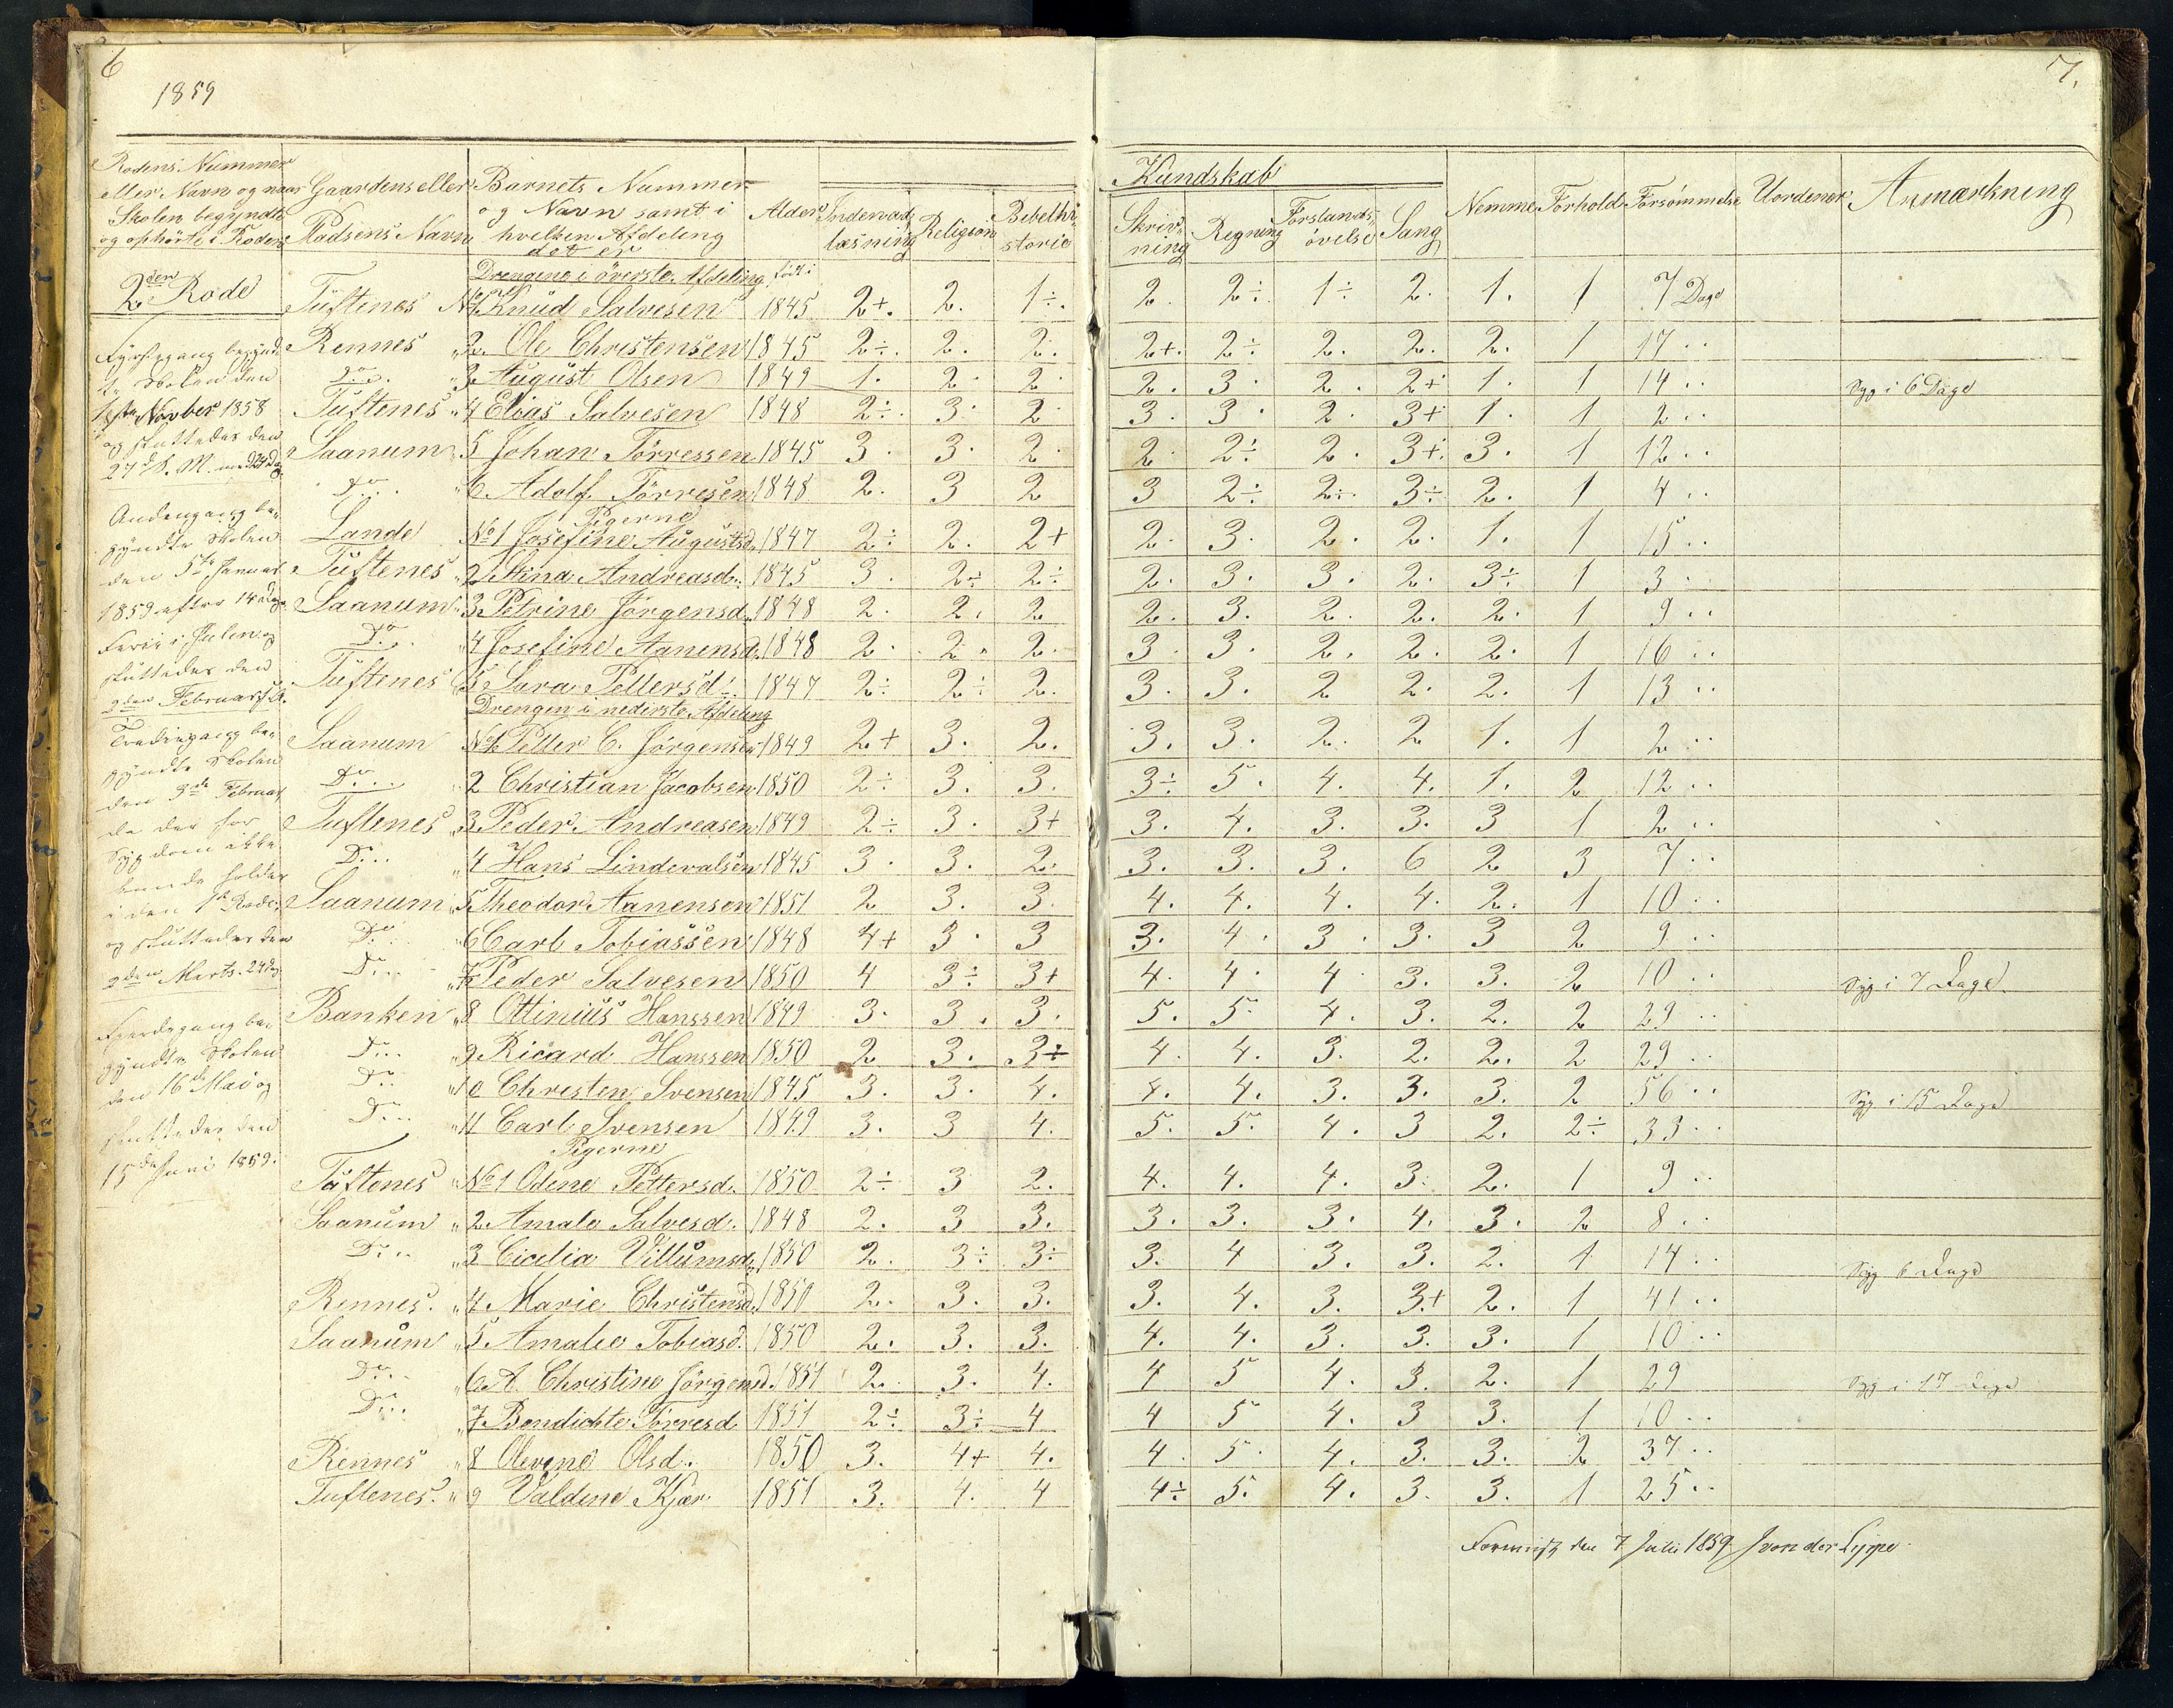 6
1859
7.
Rodens Nummer eller Navn og naar Skolen begyndte og ophørte i Roden
Gaardens eller Pladsens Navn
Barnets Nummer og Navn samt i hvilken Afdeling det er
Alder
Indenadlæsning
Religion
Bibelhistorie
Kundskab
Skrivning
Regning
Forstandsøvelse
Sang
Nemme
Forhold
Forsømmelse
Uordener
Anmærkning
2den Rode
Drengene i øverste Afdeling født i
Tuftenes No 1 Knud Salvesen 1845 2+. 2. 1÷. 2. 2÷. 1÷ 2. 1. 1 7 Dage
Rennes " 2. Ole Christensen 1845 2÷. 2. 2. 2+. 2÷ 2. 2. 2. 1 17 ..
Do. " 3. August Olsen 1849 1. 2. 2. 2. 3. 2. 2+ 1. 1 14 .. Syg i 6 Dage
Tuftenes " 4 Elias Salvesen 1848 2÷. 3. 2. 3. 3. 2. 3+ 1. 1 2 ..
Saanum " 5 Johan Tørressen 1845 3. 3. 2. 2. 2÷ 2. 3+. 3. 1 12 ..
Do.. " 6 Adolf Tørresen 1848 2. 3 2 3 2÷ 2÷. 3÷ 2. 1 4 ..
Pigerne
Lande No 1 Josefine Augustsd. 1847 2÷ 2. 2+ 2. 3. 2. 2. 1. 1 15 ..
Tuftenes " 2 Stina Andreasd. 1845 3. 2÷ 2÷ 2. 3. 3. 2. 3÷ 1 3 ..
Saanum " 3 Petrine Jørgensd. 1848 2. 2. 2 2. 3. 2. 2. 2. 1 9 ..
Do.. " 4 Josefine Aanensd. 1848 2. 2. 2. 3. 3. 2. 2. 2. 1 16 ..
Tuftenes " 5 Sara Pettersd. 1847 2÷ 2÷ 2. 3. 3. 2 2. 2. 1 13 ..
Drengene i nederste Afdeling
Saanum No 1 Petter C. Jørgensen 1849 2+ 3. 2. 3. 3. 2. 2 1. 1 2 ..
Do... " 2 Christian Jacobsen 1850 2÷ 3. 3. 3÷ 5. 4. 4. 1. 2 12 ..
Tuftenes " 3 Peder Andreasen 1849 2÷ 3. 3+ 3. 4. 3. 3. 3 1 2 ..
Do.. " 4 Hans Lindevalsen 1845 3. 3. 2. 3. 3. 3. 6 2 3 7 ..
Saanum " 5 Theodor Aanensen 1851 2 3. 3. 4. 4. 4. 4. 2. 1 10 ..
Do.. " 6 Carl Tobiassen 1848 4+ 3. 3 3. 4. 3. 3. 3 2 9 ..
Do.. " 7 Peder Salvesen 1850 4 3÷ 3+ 4. 4. 4. 3. 3. 2 10 .. Syg i 7 Dage
Banken " 8 Ottinius Hanssen 1849 3. 3. 3. 5. 5. 4. 3. 2. 2 29 ..
Do.. " 9 Ricard Hanssen 1850 2 3. 3÷ 4. 4. 3. 2. 2. 2 29 ..
Do.. " 10 Christen Svensen 1845 3. 3. 4. 4. 4. 3. 3. 3. 2 56 .. Syg i 15 Dage
Do.. " 11 Carl Svensen 1849 3. 3 4. 5. 5. 4. 3 2. 2÷ 33 ..
Pigerne
Tuftenes No 1 Odene Pettersd. 1850 2÷ 3 2. 4. 4. 4. 3. 2. 1 9 ..
Saanum " 2 Amale Salvesd. 1848 2. 3 3. 3. 3. 3. 4. 3. 2 8 ..
Do.. " 3 Cicelia Villumsd. 1850 2. 3÷ 3÷ 3. 4 3. 3. 2. 1 14 .. Syg 6 Dage
Rennes. " 4 Marie Christensd. 1850 2. 3. 3. 3. 4. 3. 3.+ 2. 1 41 ..
Saanum " 5 Amalie Tobiasd. 1850 2. 3. 3. 4. 4. 3. 3. 3. 1 10 ..
Do.. " 6 A. Christine Jørgensd. 1851 2. 3. 4. 4 5 4. 3. 2. 1 29 Syg i 17 Dage
Do.. " 7 Bendichte Tørresd 1851 2÷ 3÷ 4 4 5 4. 3 3. 1 10 ..
Rennes " 8 Olevine Olsd. 1850 3. 4+ 4. 4. 5. 4. 3. 3. 2 37 ..
Tuftenes. " 9 Valdine Kjær 1851 3. 4. 4 4÷ 5. 4. 3. 3. 1 25 ..
Førstegang begynd
te Skolen den
1ste Novber 1858
og sluttedes den
27 d. M. med 24 Dg.
Andengang be-
gyndte Skolen
den 5te Januar
1859 efter 14 Dages
Ferie i Julen og
sluttedes den
2den Februar
Trediegang be-
gyndte Skolen
den 3de Februar
da der for
Sygdom ikke
kunde holdes
i den 1ste Rode
og sluttedes den
2den Marts. 24 Dg
Fjerdegang be-
gyndte Skolen
den 16de Mai og
sluttedes den
15de Juni 1859.
Forevist den 7 Juli 1859 J von der Lippe